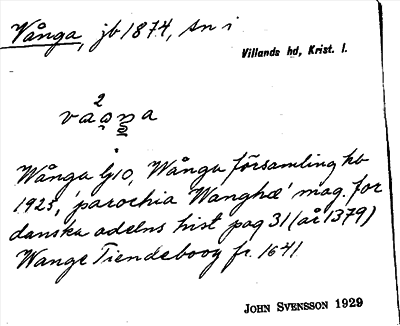 Vånga, jb 1874, sn i
Villands hd, Krist. l.
2
Vånga lj10, Vånga församling kb
1925, 'parochia Wanghæ' mag. for
danska adelns hist pag 31 (år 1379)
Wange Tiendeboog fr. 1641
JOHN SVENSSON 1929